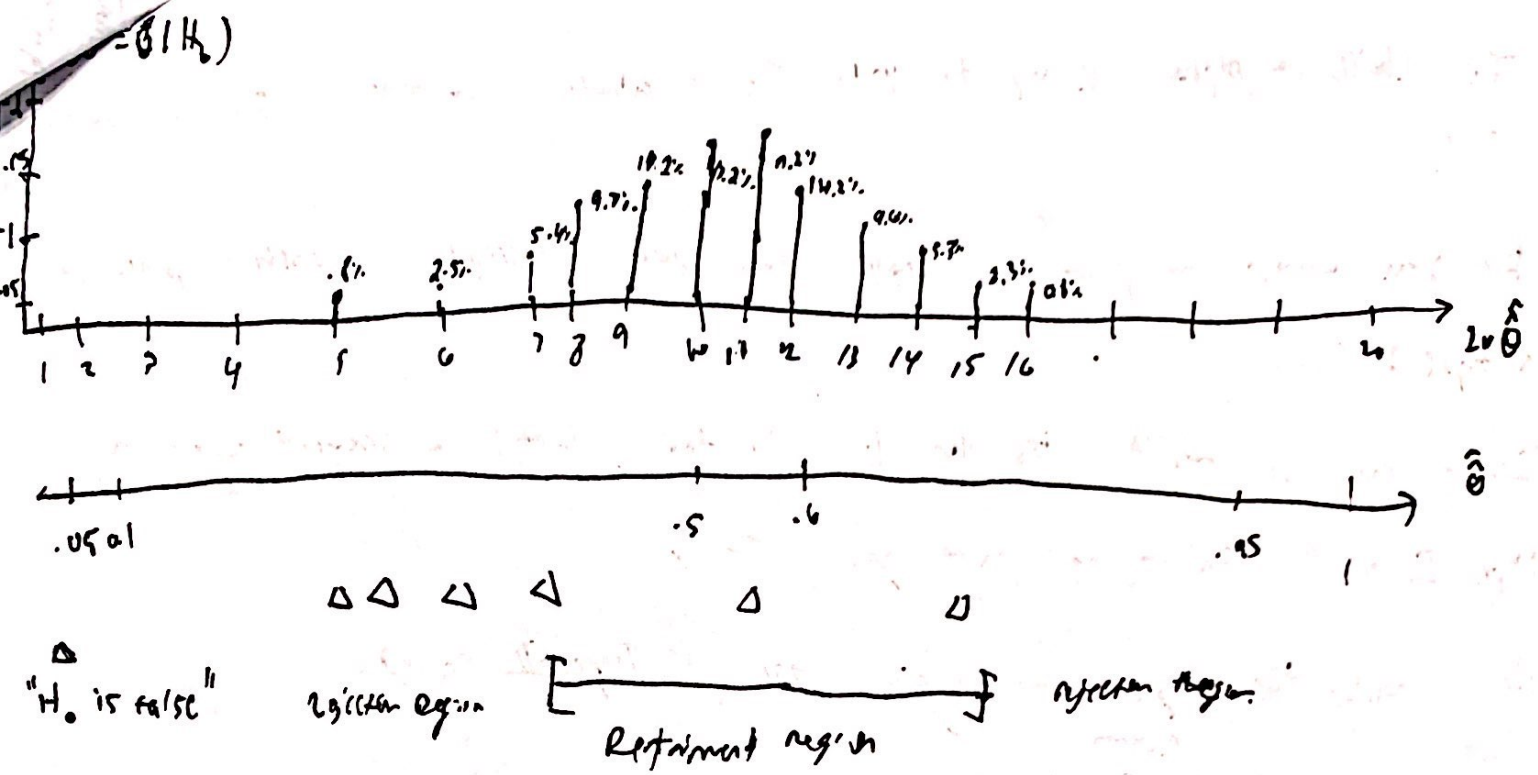 =θ|H₀)
.15
.1
.05
.8% 2.5% 5.4% 9.7% 14.2% 9.6% 5.3%
1 2 3 4 5 6 7 8 9 10 11 12 13 14 15 16 20 20 θ̂
.05 .5 .6 .95 1 θ̂
"H₀ is false" rejection region rejection region
region